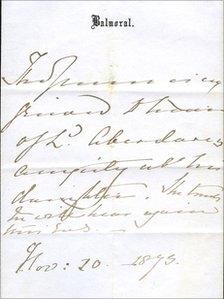 Balmoral.
The Queen is very
grieved to hear
of Ld. Aberdare's
anxiety abt his
daughter. She trusts
he will hear again
Nov: 20. 1873.